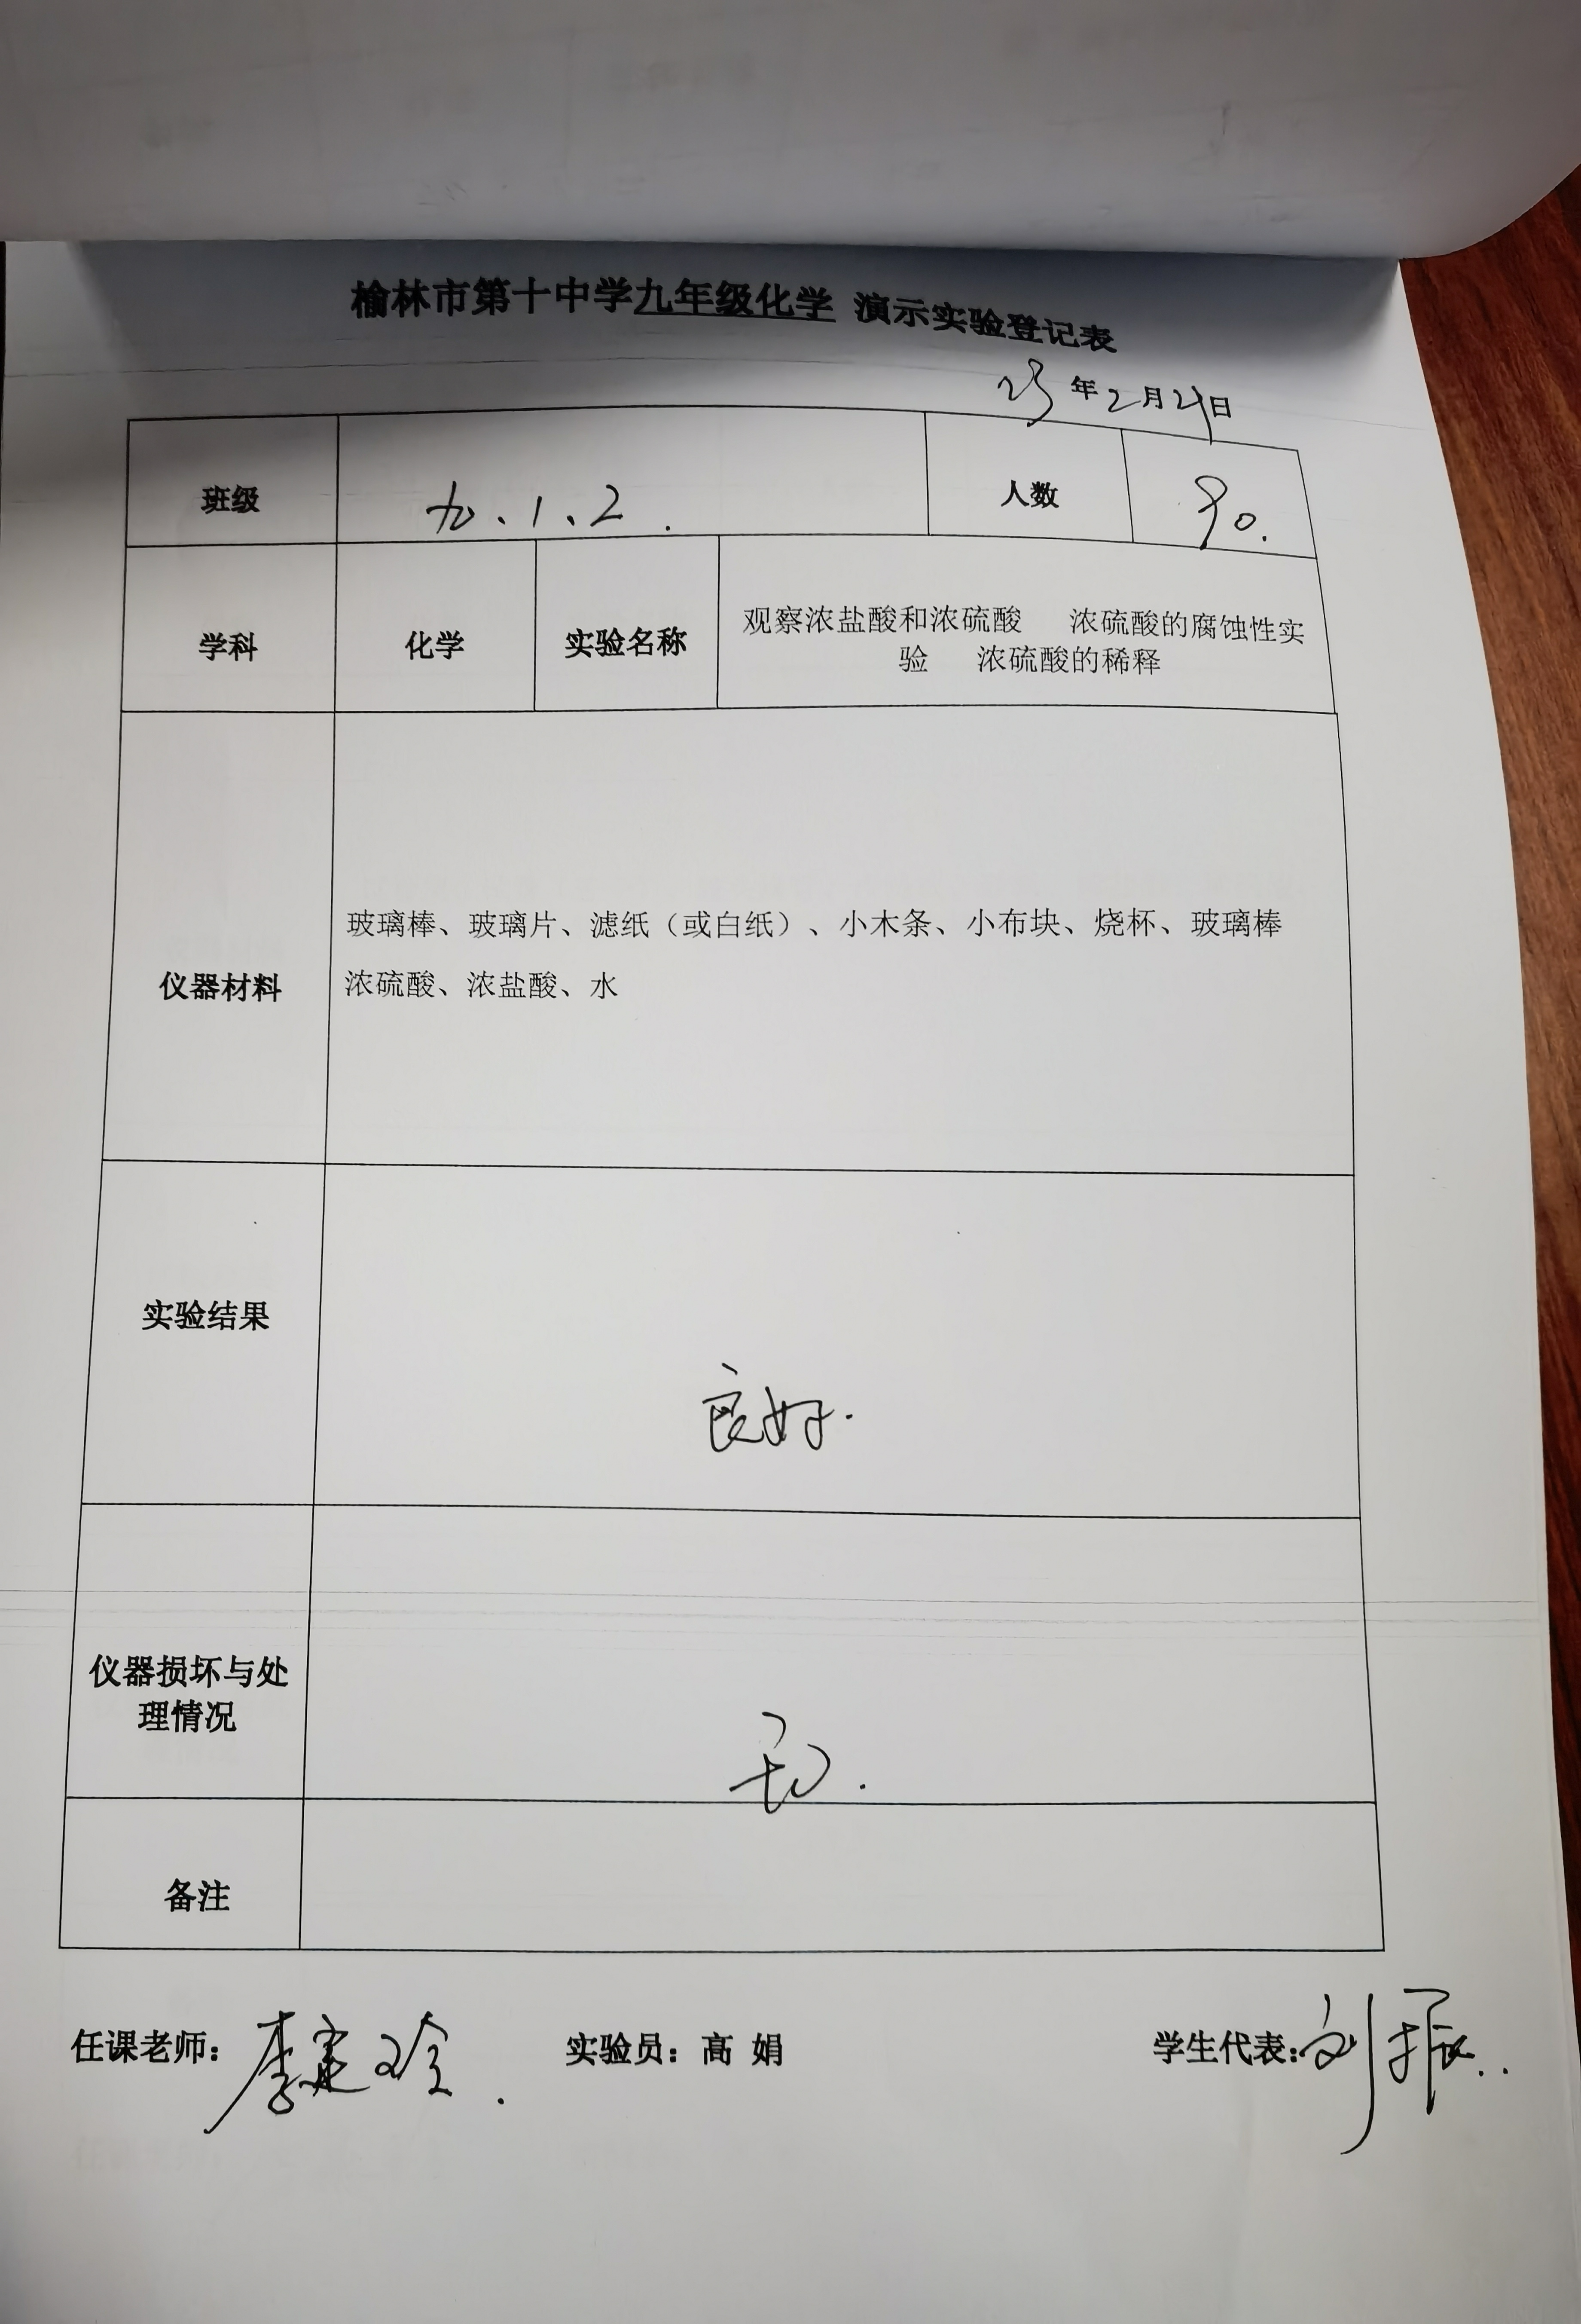 榆林市第十中学九年级化学 演示实验登记表
23年2月21日
班级 九、1、2. 人数 90.
学科 化学 实验名称 观察浓盐酸和浓硫酸 浓硫酸的腐蚀性实
验 浓硫酸的稀释
仪器材料
玻璃棒、玻璃片、滤纸（或白纸）、小木条、小布块、烧杯、玻璃棒
浓硫酸、浓盐酸、水
实验结果
良好.
仪器损坏与处
理情况
无.
备注
任课老师：李 实验员：高 娟 学生代表:刘振..